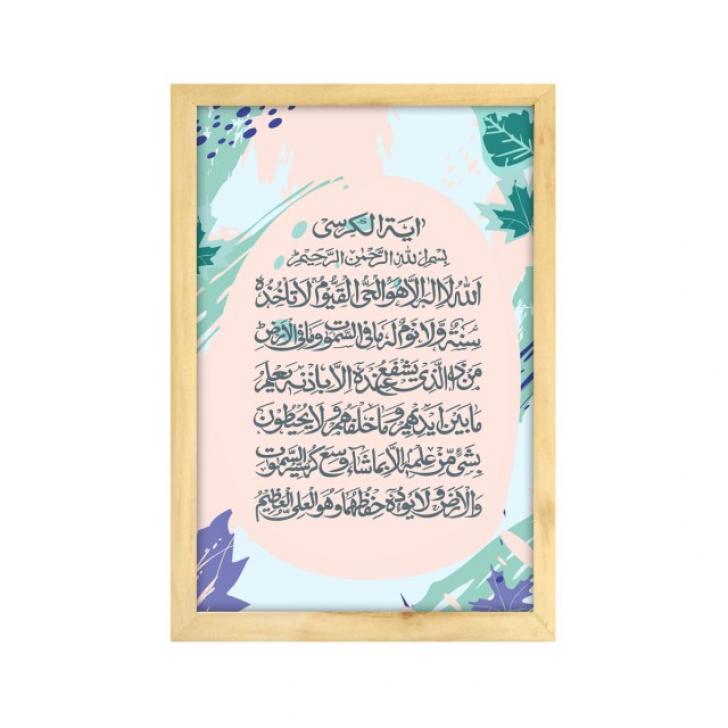 اية الكرسى
بسم الله الرحمن الرحيم
الله لا اله الا هو الحى القيوم لا تأخذه
سنة ولا نوم له مافى السموت ومافى الارض
من ذا الذى يشفع عنده الا باذنه يعلم
ما بين ايديهم وما خلفهم ولا يحيطون
بشئ من علمه الا بما شاء وسع كرسيه السموت
والارض ولا يوده حفظهما وهو العلى العظيم